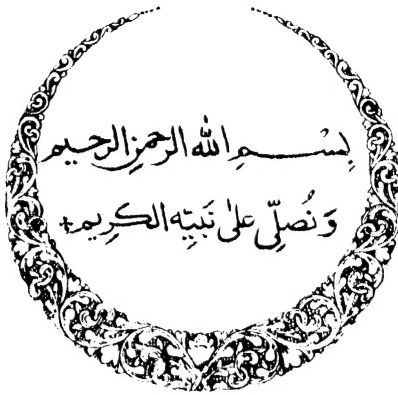 بِسْمِ اللّٰهِ الرحمنِ الرحيم
وَنُصَلِّي عَلىٰ نَبِيِّه الكَرِيم